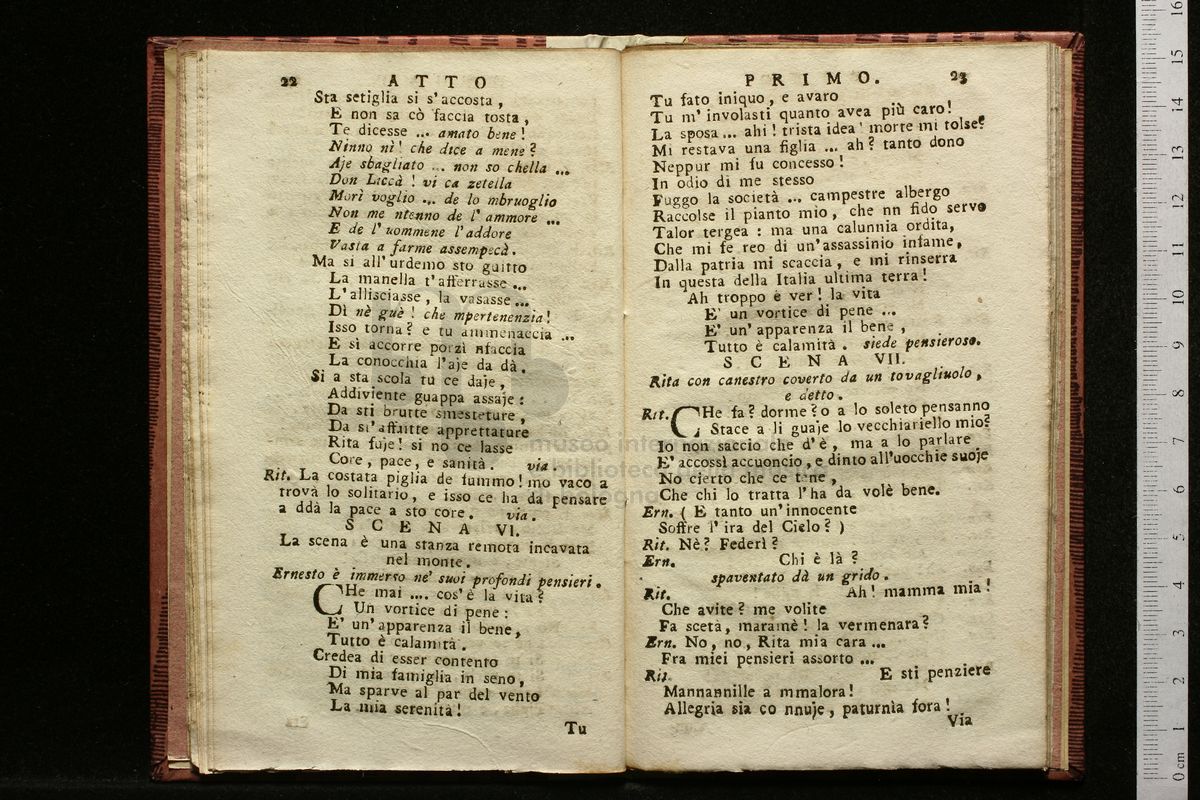 22 ATTO
Sta setiglia si s'accosta,
E non sa cò faccia tosta,
Te dicesse ... amato bene!
Ninno nì! che dice a mene?
Aje sbagliato ... non so chella ...
Don Liccà! vi ca zetella
Morì voglio ... de lo mbruoglio
Non me ntenno de l'ammore ...
E de l'uommene l'addore
Vasta a farme assempecà.
Ma si all'urdemo sto guitto
La manella t'afferrasse ...
L'allisciasse, la vasasse ...
Dì nè guè! che mpertenenzia!
Isso torna? e tu ammenaccia ...
E si accorre porzì nfaccia
La conocchia l'aje da dà.
Si a sta scola tu ce daje,
Addiviente guappa assaje:
Da sti brutte smesteture,
Da st'affritte apprettature
Rita fuje! si no ce lasse
Core, pace, e sanità. via.
Rit. La costata piglia de fummo! mo vaco a
trovà lo solitario, e isso ce ha da pensare
a ddà la pace a sto core. via.
SCENA VI.
La scena è una stanza remota incavata
nel monte.
Ernesto è immerso ne' suoi profondi pensieri.
CHe mai .... cos'è la vita?
Un vortice di pene:
E' un'apparenza il bene,
Tutto è calamità.
Credea di esser contento
Di mia famiglia in seno,
Ma sparve al par del vento
La mia serenità!
Tu
PRIMO. 23
Tu fato iniquo, e avaro
Tu m'involasti quanto avea più caro!
La sposa ... ahi! trista idea! morte mi tolse?
Mi restava una figlia ... ah? tanto dono
Neppur mi fu concesso!
In odio di me stesso
Fuggo la società ... campestre albergo
Raccolse il pianto mio, che nn fido servo
Talor tergea: ma una calunnia ordita,
Che mi fe reo di un'assassinio infame,
Dalla patria mi scaccia, e mi rinserra
In questa della Italia ultima terra!
Ah troppo è ver! la vita
E' un vortice di pene ...
E' un'apparenza il bene,
Tutto è calamità. siede pensieroso.
SCENA VII.
Rita con canestro coverto da un tovagliuolo,
e detto.
Rit. CHe fa? dorme? o a lo soleto pensanno
Stace a li guaje lo vecchiariello mio?
Io non saccio che d'è, ma a lo parlare
E' accossì accuoncio, e dinto all'uocchie suoje
No cierto che ce tene,
Che chi lo tratta l'ha da volè bene.
Ern. (E tanto un'innocente
Soffre l'ira del Cielo?)
Rit. Nè? Federì?
Ern. Chi è là?
spaventato dà un grido.
Rit. Ah! mamma mia!
Che avite? me volite
Fa scetà, maramè! la vermenara?
Ern. No, no, Rita mia cara ...
Fra miei pensieri assorto ...
Rit. E sti penziere
Mannannille a mmalora!
Allegria sia co nnuje, paturnia fora!
Via